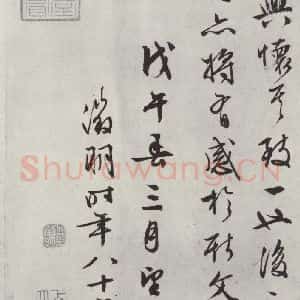 興懷其致一也後
亦將有感於斯文
戊午春三月望
徵明時年八十
Shufawang.CN